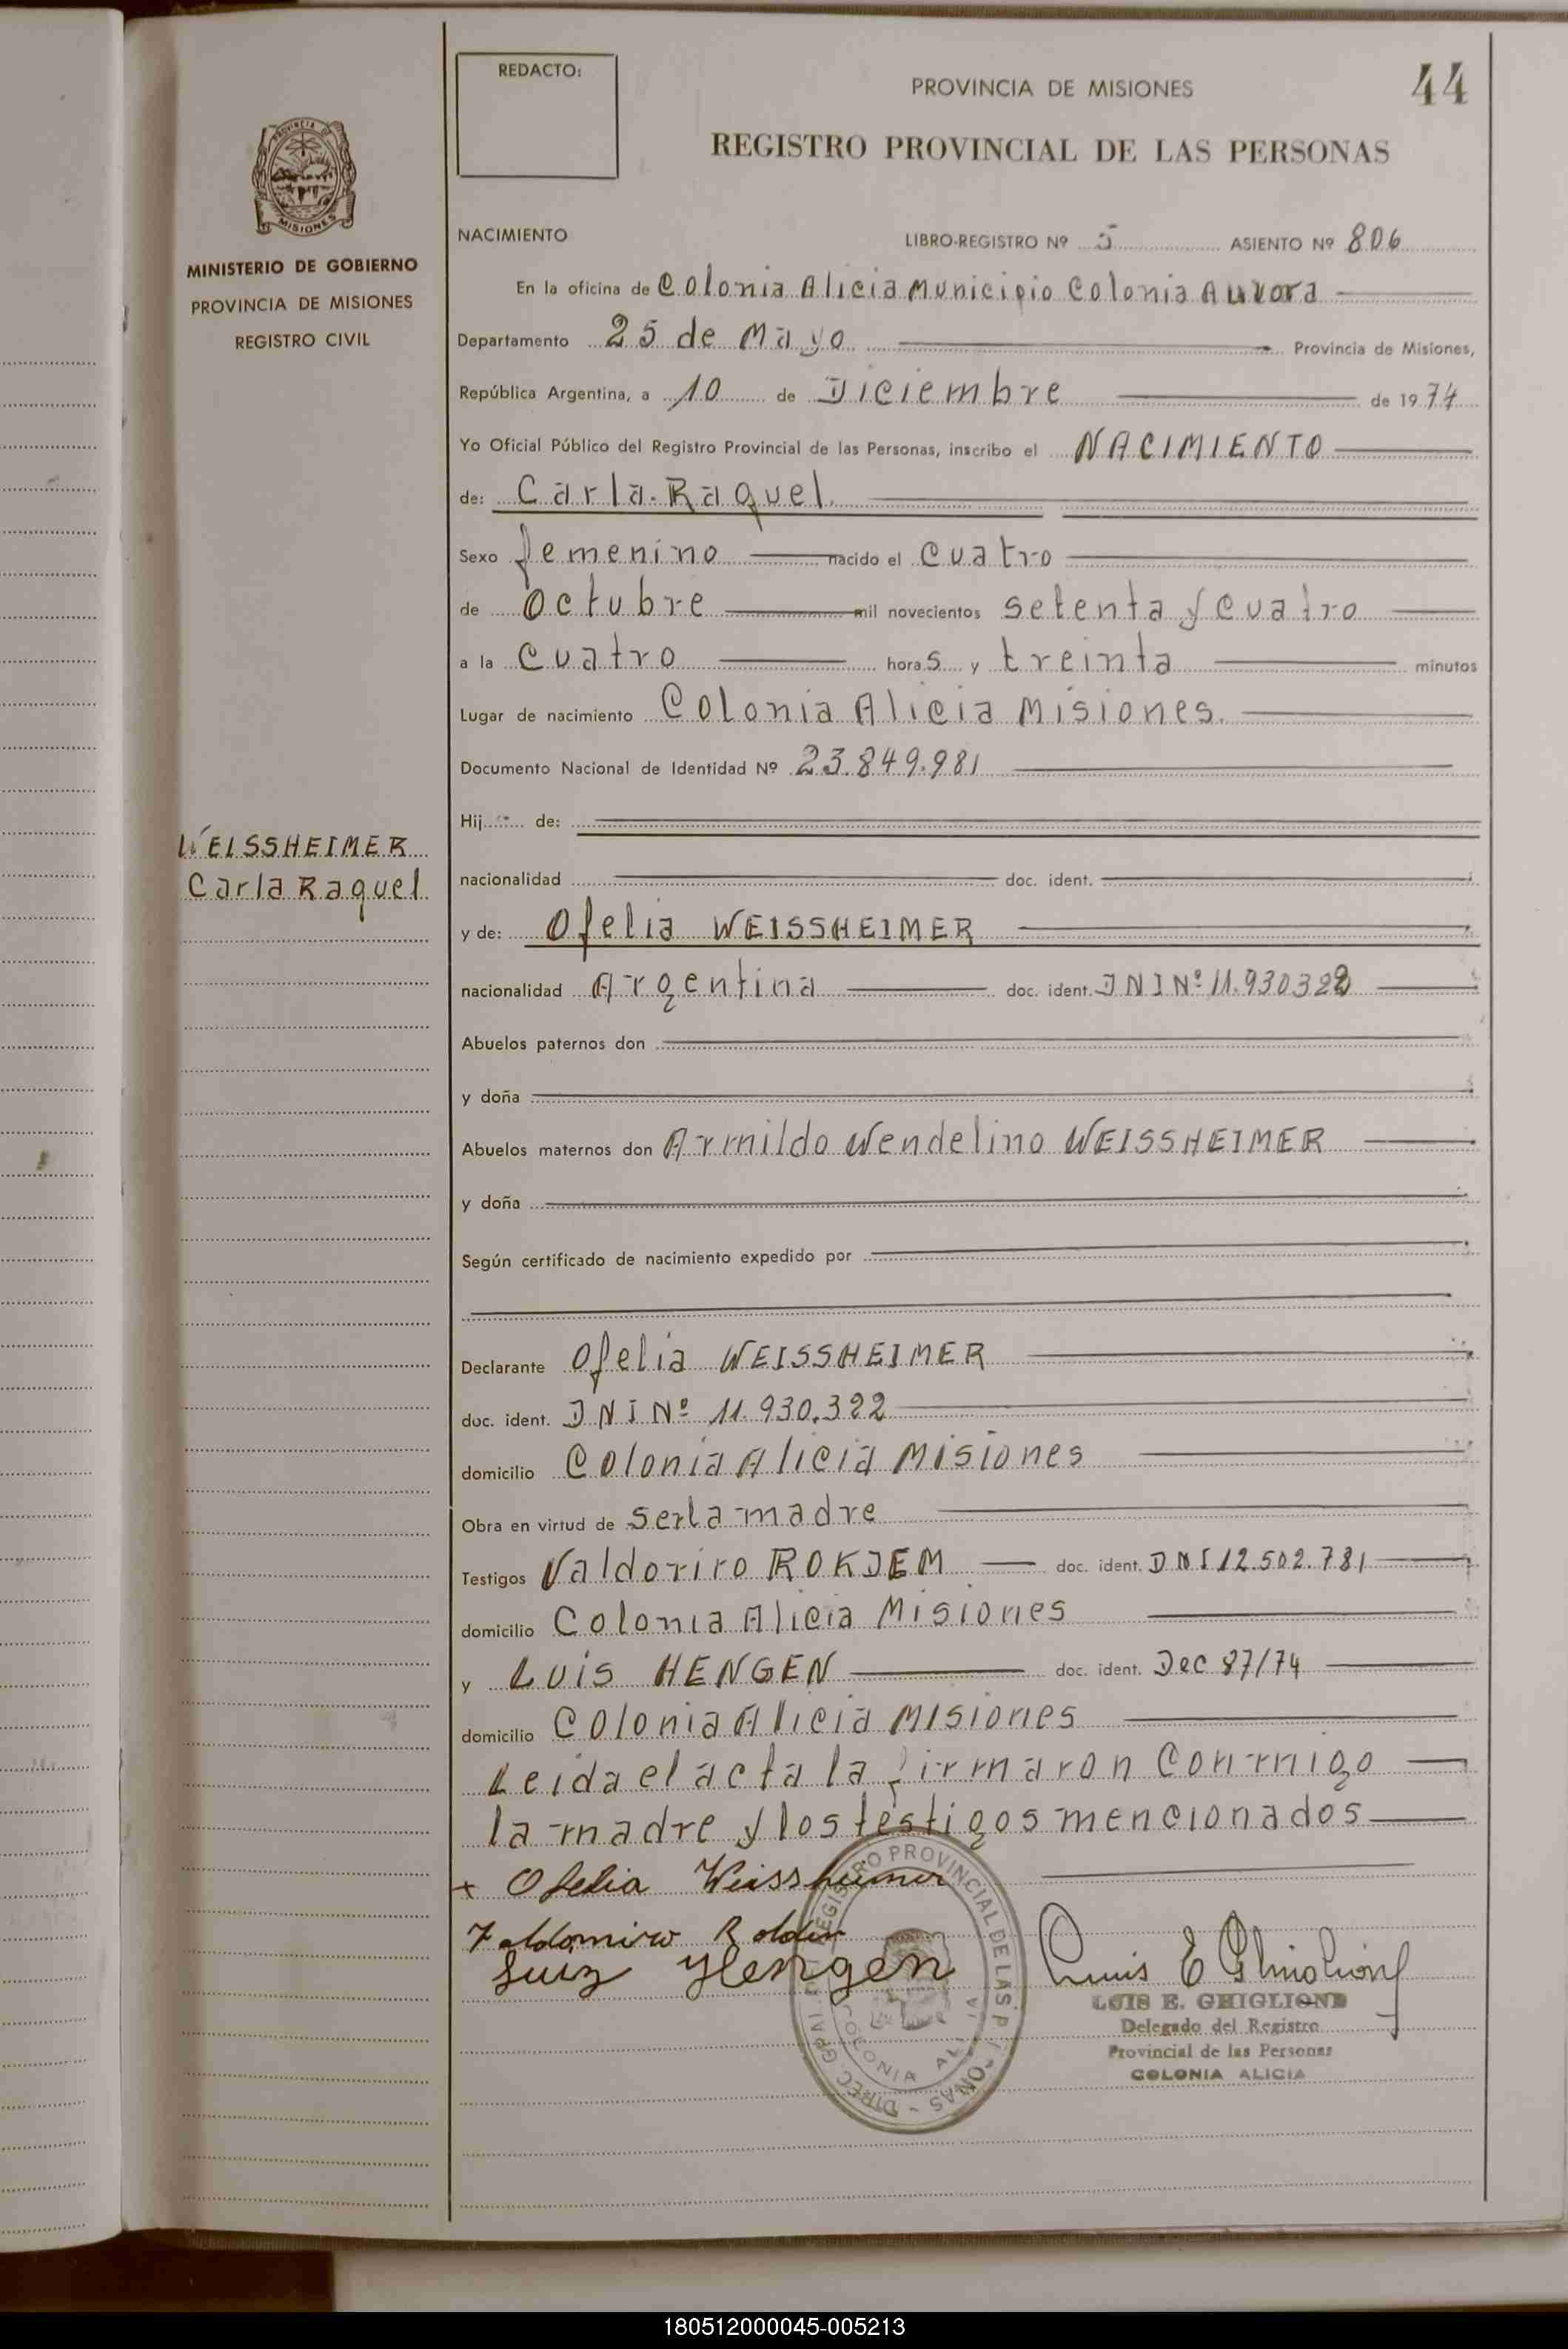 44
REDACTO:
PROVINCIA DE MISIONES
REGISTRO PROVINCIAL DE LAS PERSONAS
PROVINCIA DE
MISIONES
MINISTERIO DE GOBIERNO
PROVINCIA DE MISIONES
REGISTRO CIVIL
WEISSHEIMER
Carla Raquel
NACIMIENTO LIBRO-REGISTRO Nº 5 ASIENTO Nº 806
En la oficina de Colonia Alicia Municipio Colonia Aurora
Departamento 25 de Mayo Provincia de Misiones,
República Argentina, a 10 de Diciembre de 1974
Yo Oficial Público del Registro Provincial de las Personas, inscribo el NACIMIENTO
de: Carla Raquel.
Sexo femenino nacido el cuatro
de Octubre mil novecientos setenta y cuatro
a la cuatro horas y treinta minutos
Lugar de nacimiento Colonia Alicia Misiones.
Documento Nacional de Identidad Nº 23.849.981
Hij de:
nacionalidad doc. ident.
y de: Ofelia WEISSHEIMER
nacionalidad Argentina doc. ident. DNI Nº 11.930322
Abuelos paternos don
y doña
Abuelos maternos don Armildo Wendelino WEISSHEIMER
y doña
Según certificado de nacimiento expedido por
Declarante Ofelia WEISSHEIMER
doc. ident. DNI Nº 11.930.322
domicilio Colonia Alicia Misiones
Obra en virtud de ser la madre
Testigos doc. ident. DNI 12.502.781
domicilio Colonia Alicia Misiones
y Luis HENGEN doc. ident. Dec 87/74
domicilio Colonia Alicia Misiones
Leida el acta la firmaron conmigo
la madre y los testigos mencionados
+ Ofelia Weissheimer
Luiz Hengen
DIREC. GRAL. DEL REGISTRO PROVINCIAL DE LAS PERSONAS
COLONIA ALICIA
LUIS E. GHIGLIONE
Delegado del Registro
Provincial de las Personas
COLONIA ALICIA
180512000045-005213